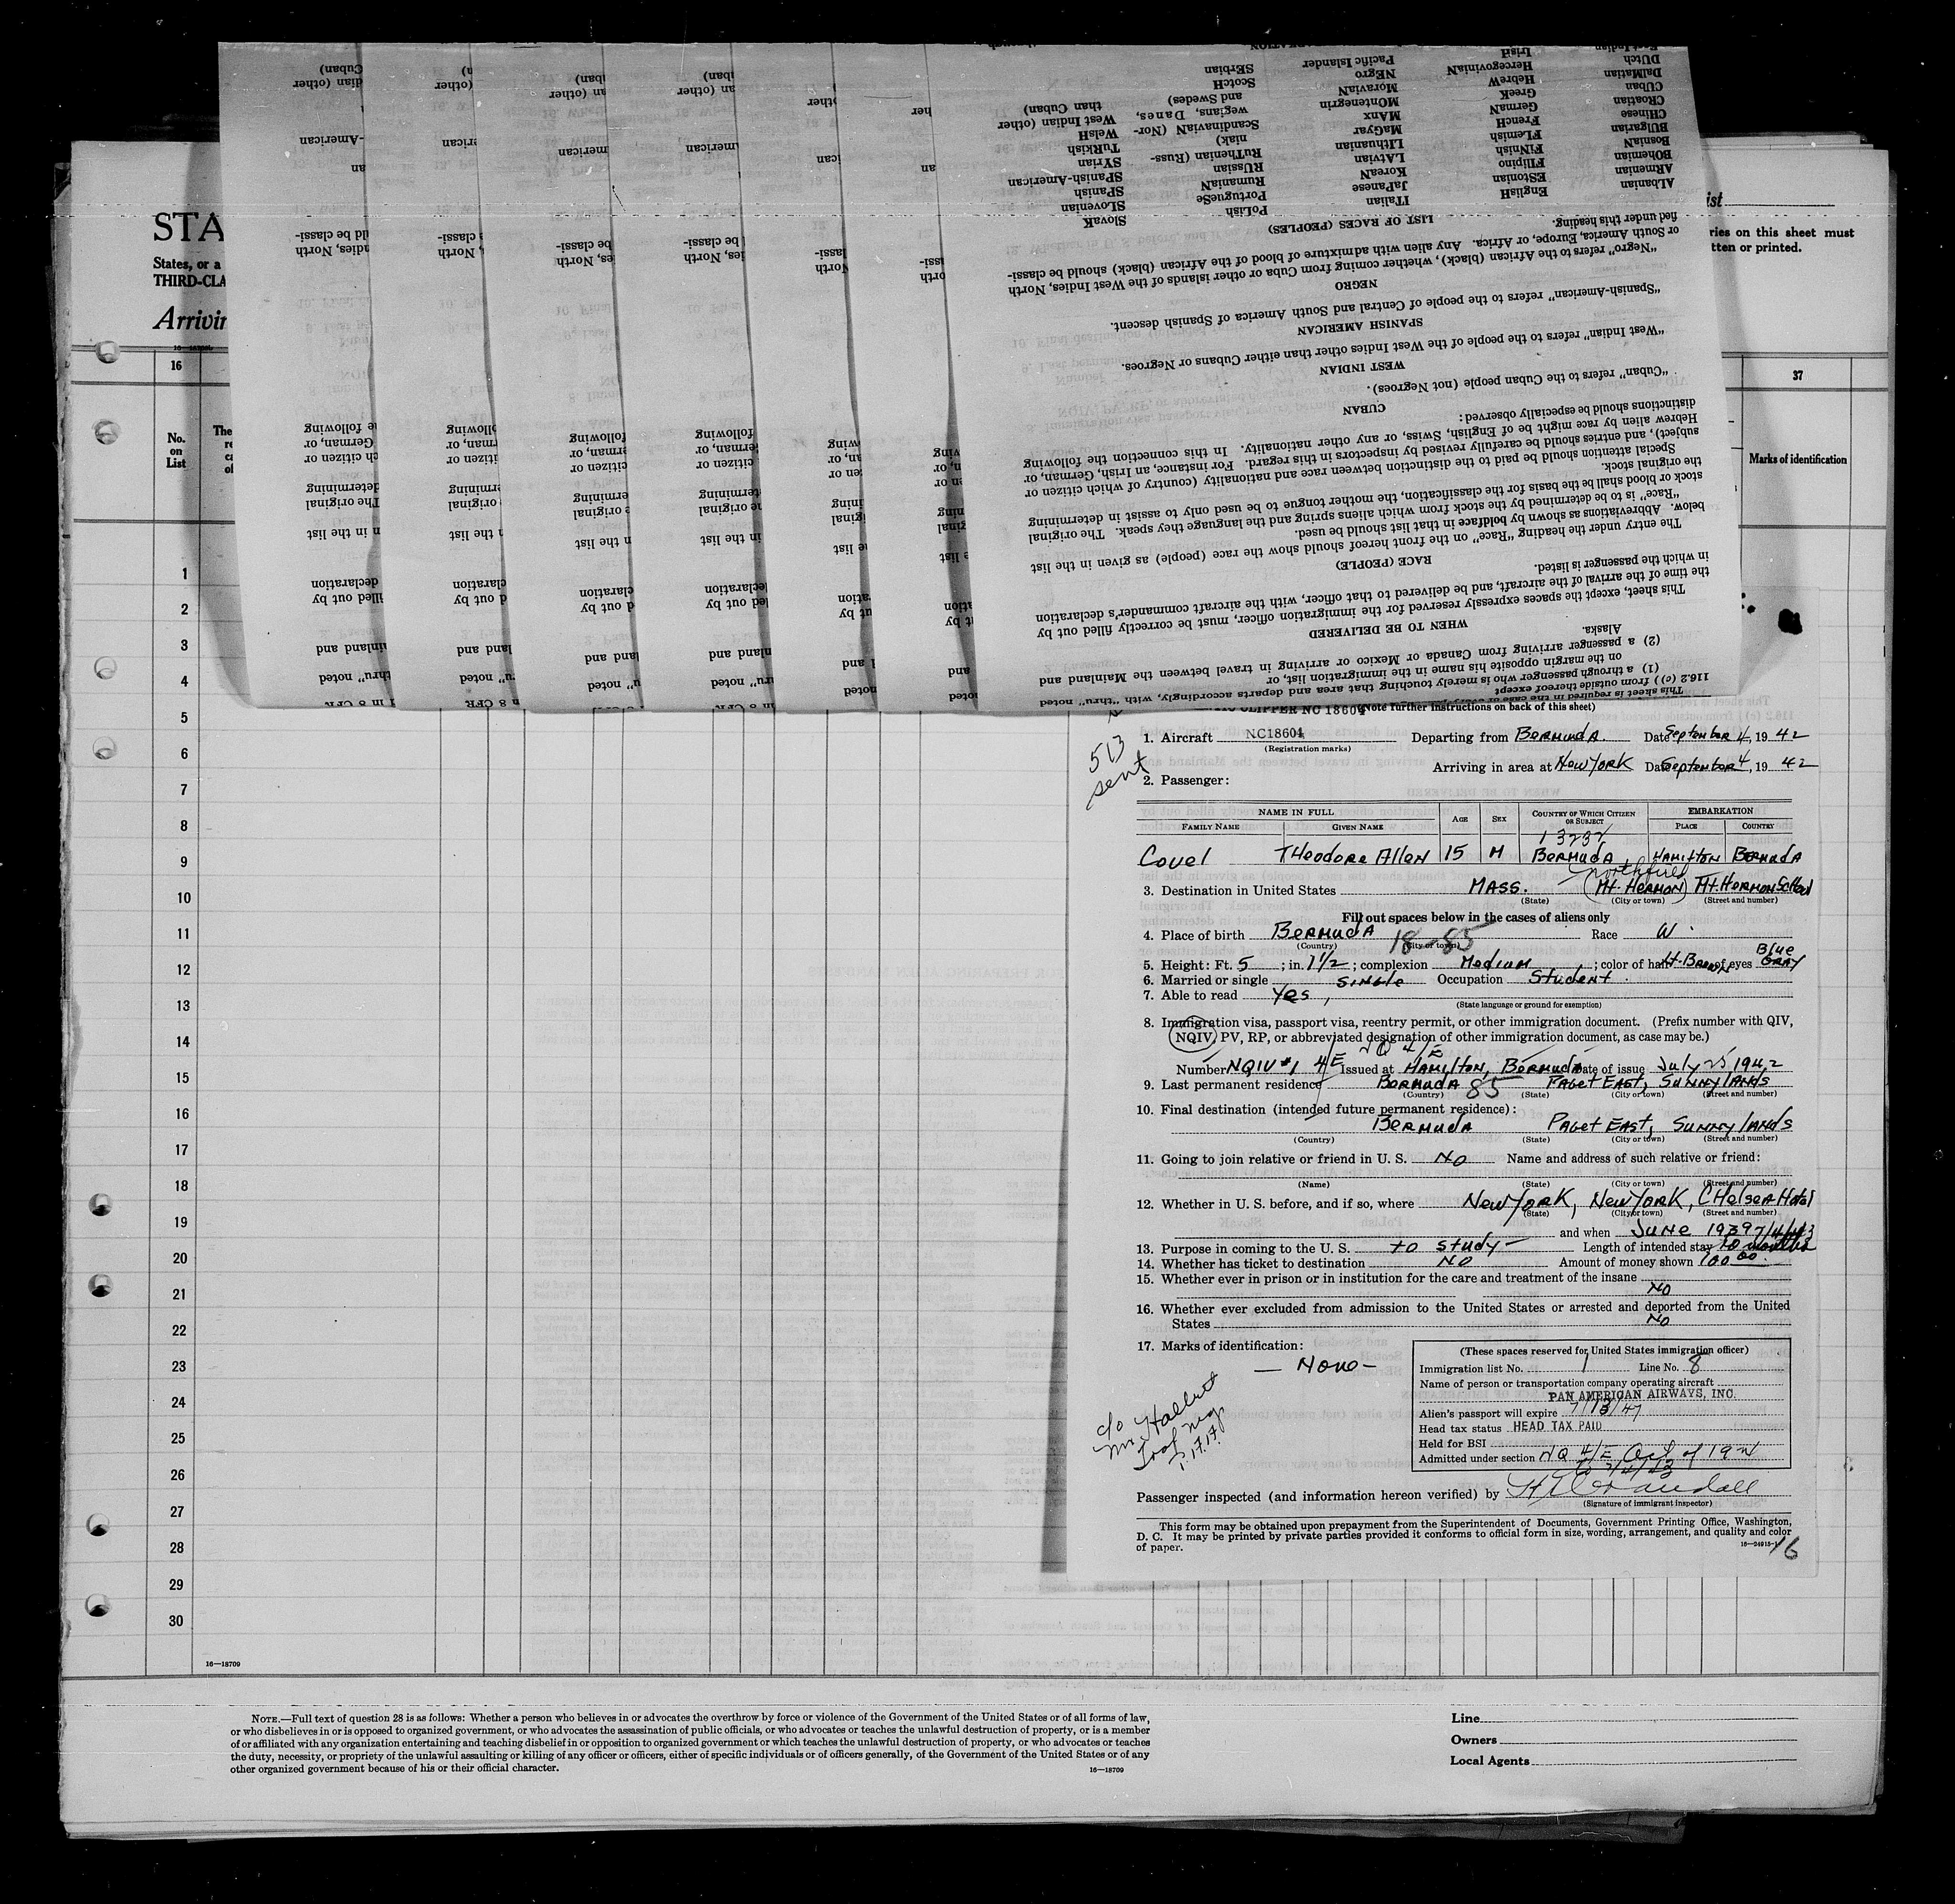 STA
States, or a
THIRD-CLA
Arrivin
ist
ries on this sheet must
tten or printed.
16
37
No.
on
List
Marks of identification
1
2
3
4
5
6
7
8
9
10
11
12
13
14
15
16
17
18
19
20
21
22
23
24
25
26
27
28
29
30
16—18709
This sheet, except the spaces expressly reserved for the immigration officer, must be correctly filled out by
the time of the arrival of the aircraft, and be delivered to that officer, with the aircraft commander's declaration
in which the passenger is listed.
WHEN TO BE DELIVERED
116.2 (c)) from outside thereof except
(1) a through passenger who is merely touching that area and departs accordingly, with "thru" noted
on the margin opposite his name in the immigration list, or
(2) a passenger arriving from Canada or Mexico or arriving in travel between the Mainland and
Alaska.
RACE (PEOPLE)
The entry under the heading "Race" on the front hereof should show the race (people) as given in the list
below. Abbreviations as shown by boldface in that list should be used.
"Race" is to be determined by the stock from which aliens spring and the language they speak. The original
stock or blood shall be the basis for the classification, the mother tongue to be used only to assist in determining
the original stock.
Special attention should be paid to the distinction between race and nationality (country of which citizen or
subject), and entries should be carefully revised by inspectors in this regard. For instance, an Irish, German, or
Hebrew alien by race might be of English, Swiss, or any other nationality. In this connection the following
distinctions should be especially observed:
CUBAN
"Cuban" refers to the Cuban people (not Negroes).
WEST INDIAN
"West Indian" refers to the people of the West Indies other than either Cubans or Negroes.
SPANISH AMERICAN
"Spanish-American" refers to the people of Central and South America of Spanish descent.
NEGRO
"Negro" refers to the African (black), whether coming from Cuba or other islands of the West Indies, North
or South America, Europe, or Africa. Any alien with admixture of blood of the African (black) should be classi-
fied under this heading.
LIST OF RACES (PEOPLES)
ALbanian EnglisH ITaliaN PoLish SlovaK
ARmenian EStonian JaPanese PortugueSe SLOvenian
BOhemian FIlipino KoreaN RumaniaN SPanish
BosniaN FiNnish LAtvian RUssian SPanish-American
BUlgarian FLemish LIthuanian RuThenian (Russ- SYrian
CHinese FrencH MaGyar niak) TuRkish
CRoatian GermaN MAnx ScandinaviaN (Nor- WelsH
CUban GreeK MOntenegrin wegians, Danes, West Indian (other
DalMatian HebreW MoraviaN and Swedes) than Cuban)
DUtch HercegoviniaN NEgro ScotcH
East Indian IrisH Pacific Islander SErbian
CLIPPER NC 18604
(Note further instructions on back of this sheet)
513
sent
1. Aircraft NC18604 Departing from Bermuda Date September 4, 1942
(Registration marks)
Arriving in area at New York Date September 4, 1942
2. Passenger:
NAME IN FULL AGE SEX COUNTRY OF WHICH CITIZEN OR SUBJECT EMBARKATION
FAMILY NAME GIVEN NAME PLACE COUNTRY
13232
Covel Theodore Allen 15 M Bermuda Hamilton Bermuda
Northfield
3. Destination in United States Mass. (Mt. Hermon) Mt. Hermon School
(State) (City or town) (Street and number)
Fill out spaces below in the cases of aliens only
4. Place of birth Bermuda 18-85 Race W
(Country) (City or town)
Blue
5. Height: Ft. 5; in. 1½; complexion Medium; color of hair Lt. Brown; of eyes Gray
6. Married or single Single Occupation Student
7. Able to read Yes,
(State language or ground for exemption)
8. Immigration visa, passport visa, reentry permit, or other immigration document. (Prefix number with QIV,
NQIV, PV, RP, or abbreviated designation of other immigration document, as case may be.)
NQ 4/E
Number NQIV #1 4E Issued at Hamilton, Bermuda Date of issue July 25 1942
9. Last permanent residence Bermuda 85 Paget East, Sunnylands
(Country) (State) (City or town) (Street and number)
10. Final destination (intended future permanent residence):
Bermuda Paget East, Sunnylands
(Country) (State) (City or town) (Street and number)
11. Going to join relative or friend in U. S. No Name and address of such relative or friend:
(Name) (State) (City or town) (Street and number)
12. Whether in U. S. before, and if so, where New York, New York, Chelsea Hotel
(State) (City or town) (Street and number)
and when June 1939 7/4/43
13. Purpose in coming to the U. S. to study Length of intended stay 10 months
14. Whether has ticket to destination No Amount of money shown 100.00
15. Whether ever in prison or in institution for the care and treatment of the insane
No
16. Whether ever excluded from admission to the United States or arrested and deported from the United
States No
17. Marks of identification:
— None —
c/o
Mr.
(These spaces reserved for United States immigration officer)
Immigration list No. 1 Line No. 8
Name of person or transportation company operating aircraft
PAN AMERICAN AIRWAYS, INC.
Alien's passport will expire 7/13/47
Head tax status HEAD TAX PAID
Held for BSI
Admitted under section NQ 4/E Act of 1924
to 7/4/43
Passenger inspected (and information hereon verified) by
(Signature of immigrant inspector)
This form may be obtained upon prepayment from the Superintendent of Documents, Government Printing Office, Washington,
D. C. It may be printed by private parties provided it conforms to official form in size, wording, arrangement, and quality and color
of paper.
16—24915-1
16
NOTE.—Full text of question 28 is as follows: Whether a person who believes in or advocates the overthrow by force or violence of the Government of the United States or of all forms of law,
or who disbelieves in or is opposed to organized government, or who advocates the assassination of public officials, or who advocates or teaches the unlawful destruction of property, or is a member
of or affiliated with any organization entertaining and teaching disbelief in or opposition to organized government or which teaches the unlawful destruction of property, or who advocates or teaches
the duty, necessity, or propriety of the unlawful assaulting or killing of any officer or officers, either of specific individuals or of officers generally, of the Government of the United States or of any
other organized government because of his or their official character.
16—18709
Line
Owners
Local Agents